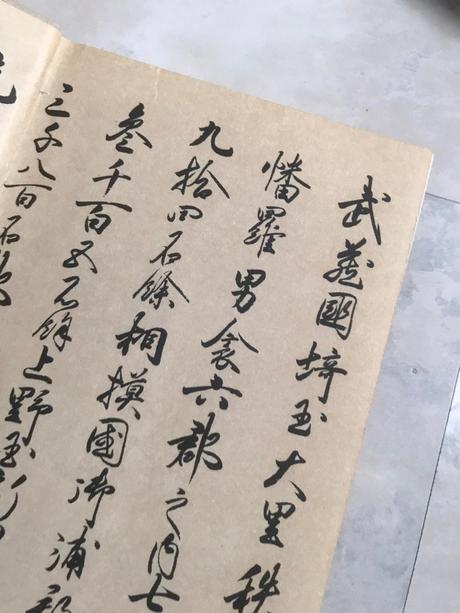 武蔵國埼玉大里秩
幡羅男衾六郡之内七
九拾四石餘相摸國御浦郡
叁千百五石餘上野國
三千八百石餘